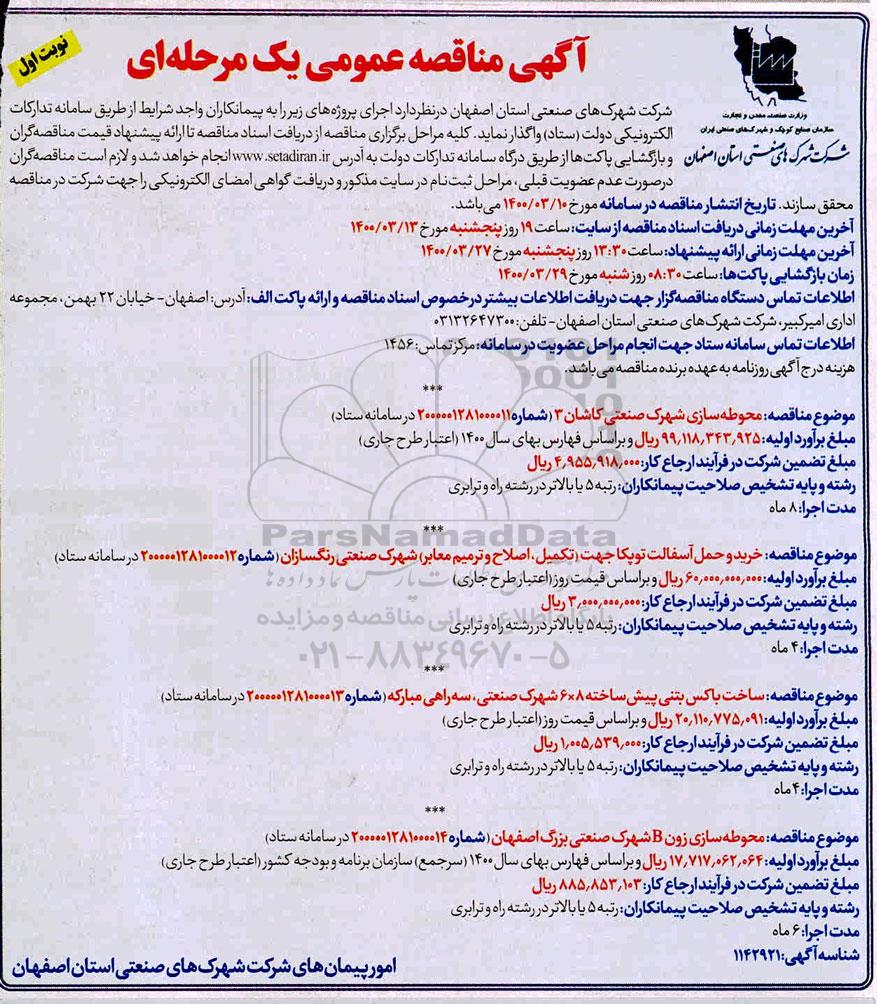 نوبت اول
آگهی مناقصه عمومی یک مرحله‌ای
وزارت صنعت، معدن و تجارت
سازمان صنایع کوچک و شهرک‌های صنعتی ایران
شرکت شهرک‌های صنعتی استان اصفهان
شرکت شهرک‌های صنعتی استان اصفهان درنظر دارد اجرای پروژه‌های زیر را به پیمانکاران واجد شرایط از طریق سامانه تدارکات
الکترونیکی دولت (ستاد) واگذار نماید. کلیه مراحل برگزاری مناقصه از دریافت اسناد مناقصه تا ارائه پیشنهاد قیمت مناقصه‌گران
و بازگشایی پاکت‌ها از طریق درگاه سامانه تدارکات دولت به آدرس www.setadiran.ir انجام خواهد شد و لازم است مناقصه‌گران
درصورت عدم عضویت قبلی، مراحل ثبت‌نام در سایت مذکور و دریافت گواهی امضای الکترونیکی را جهت شرکت در مناقصه
محقق سازند. تاریخ انتشار مناقصه در سامانه مورخ ۱۴۰۰/۰۳/۱۰ می‌باشد.
آخرین مهلت زمانی دریافت اسناد مناقصه از سایت: ساعت ۱۹ روز پنجشنبه مورخ ۱۴۰۰/۰۳/۱۳
آخرین مهلت زمانی ارائه پیشنهاد: ساعت ۱۳:۳۰ روز پنجشنبه مورخ ۱۴۰۰/۰۳/۲۷
زمان بازگشایی پاکت‌ها: ساعت ۰۸:۳۰ روز شنبه مورخ ۱۴۰۰/۰۳/۲۹
اطلاعات تماس دستگاه مناقصه‌گزار جهت دریافت اطلاعات بیشتر درخصوص اسناد مناقصه و ارائه پاکت الف: آدرس: اصفهان- خیابان ۲۲ بهمن، مجموعه
اداری امیرکبیر، شرکت شهرک‌های صنعتی استان اصفهان - تلفن: ۰۳۱۳۲۶۴۷۳۰۰
اطلاعات تماس سامانه ستاد جهت انجام مراحل عضویت در سامانه: مرکز تماس: ۱۴۵۶
هزینه درج آگهی روزنامه به عهده برنده مناقصه می‌باشد.
***
موضوع مناقصه: محوطه‌سازی شهرک صنعتی کاشان ۳ (شماره ۲۰۰۰۰۰۱۲۸۱۰۰۰۰۱۱ در سامانه ستاد)
مبلغ برآورد اولیه: ۹۹،۱۱۸،۳۴۳،۹۲۵ ریال و براساس فهارس بهای سال ۱۴۰۰ (اعتبار طرح جاری)
مبلغ تضمین شرکت در فرآیند ارجاع کار: ۴،۹۵۵،۹۱۸،۰۰۰ ریال
رشته و پایه تشخیص صلاحیت پیمانکاران: رتبه ۵ یا بالاتر در رشته راه و ترابری
مدت اجرا: ۸ ماه
***
موضوع مناقصه: خرید و حمل آسفالت توپکا جهت (تکمیل، اصلاح و ترمیم معابر) شهرک صنعتی رنگسازان (شماره ۲۰۰۰۰۰۱۲۸۱۰۰۰۰۱۲ در سامانه ستاد)
مبلغ برآورد اولیه: ۶۰،۰۰۰،۰۰۰،۰۰۰ ریال و براساس قیمت روز (اعتبار طرح جاری)
مبلغ تضمین شرکت در فرآیند ارجاع کار: ۳،۰۰۰،۰۰۰،۰۰۰ ریال
رشته و پایه تشخیص صلاحیت پیمانکاران: رتبه ۵ یا بالاتر در رشته راه و ترابری
مدت اجرا: ۴ ماه
***
موضوع مناقصه: ساخت باکس بتنی پیش ساخته ۸×۶ شهرک صنعتی، سه‌راهی مبارکه (شماره ۲۰۰۰۰۰۱۲۸۱۰۰۰۰۱۳ در سامانه ستاد)
مبلغ برآورد اولیه: ۲۰،۱۱۰،۷۷۵،۰۹۱ ریال و براساس قیمت روز (اعتبار طرح جاری)
مبلغ تضمین شرکت در فرآیند ارجاع کار: ۱،۰۰۵،۵۳۹،۰۰۰ ریال
رشته و پایه تشخیص صلاحیت پیمانکاران: رتبه ۵ یا بالاتر در رشته راه و ترابری
مدت اجرا: ۴ ماه
***
موضوع مناقصه: محوطه‌سازی زون B شهرک صنعتی بزرگ اصفهان (شماره ۲۰۰۰۰۰۱۲۸۱۰۰۰۰۱۴ در سامانه ستاد)
مبلغ برآورد اولیه: ۱۷،۷۱۷،۰۶۲،۰۶۴ ریال و براساس فهارس بهای سال ۱۴۰۰ (سرجمع) سازمان برنامه و بودجه کشور (اعتبار طرح جاری)
مبلغ تضمین شرکت در فرآیند ارجاع کار: ۸۸۵،۸۵۳،۱۰۳ ریال
رشته و پایه تشخیص صلاحیت پیمانکاران: رتبه ۵ یا بالاتر در رشته راه و ترابری
مدت اجرا: ۶ ماه
شناسه آگهی: ۱۱۴۲۹۲۱
امور پیمان‌های شرکت شهرک‌های صنعتی استان اصفهان
ParsNamadData
پارس نماد داده‌ها
بانک اطلاع رسانی مناقصه و مزایده
۰۲۱-۸۸۳۴۹۶۷۰-۵